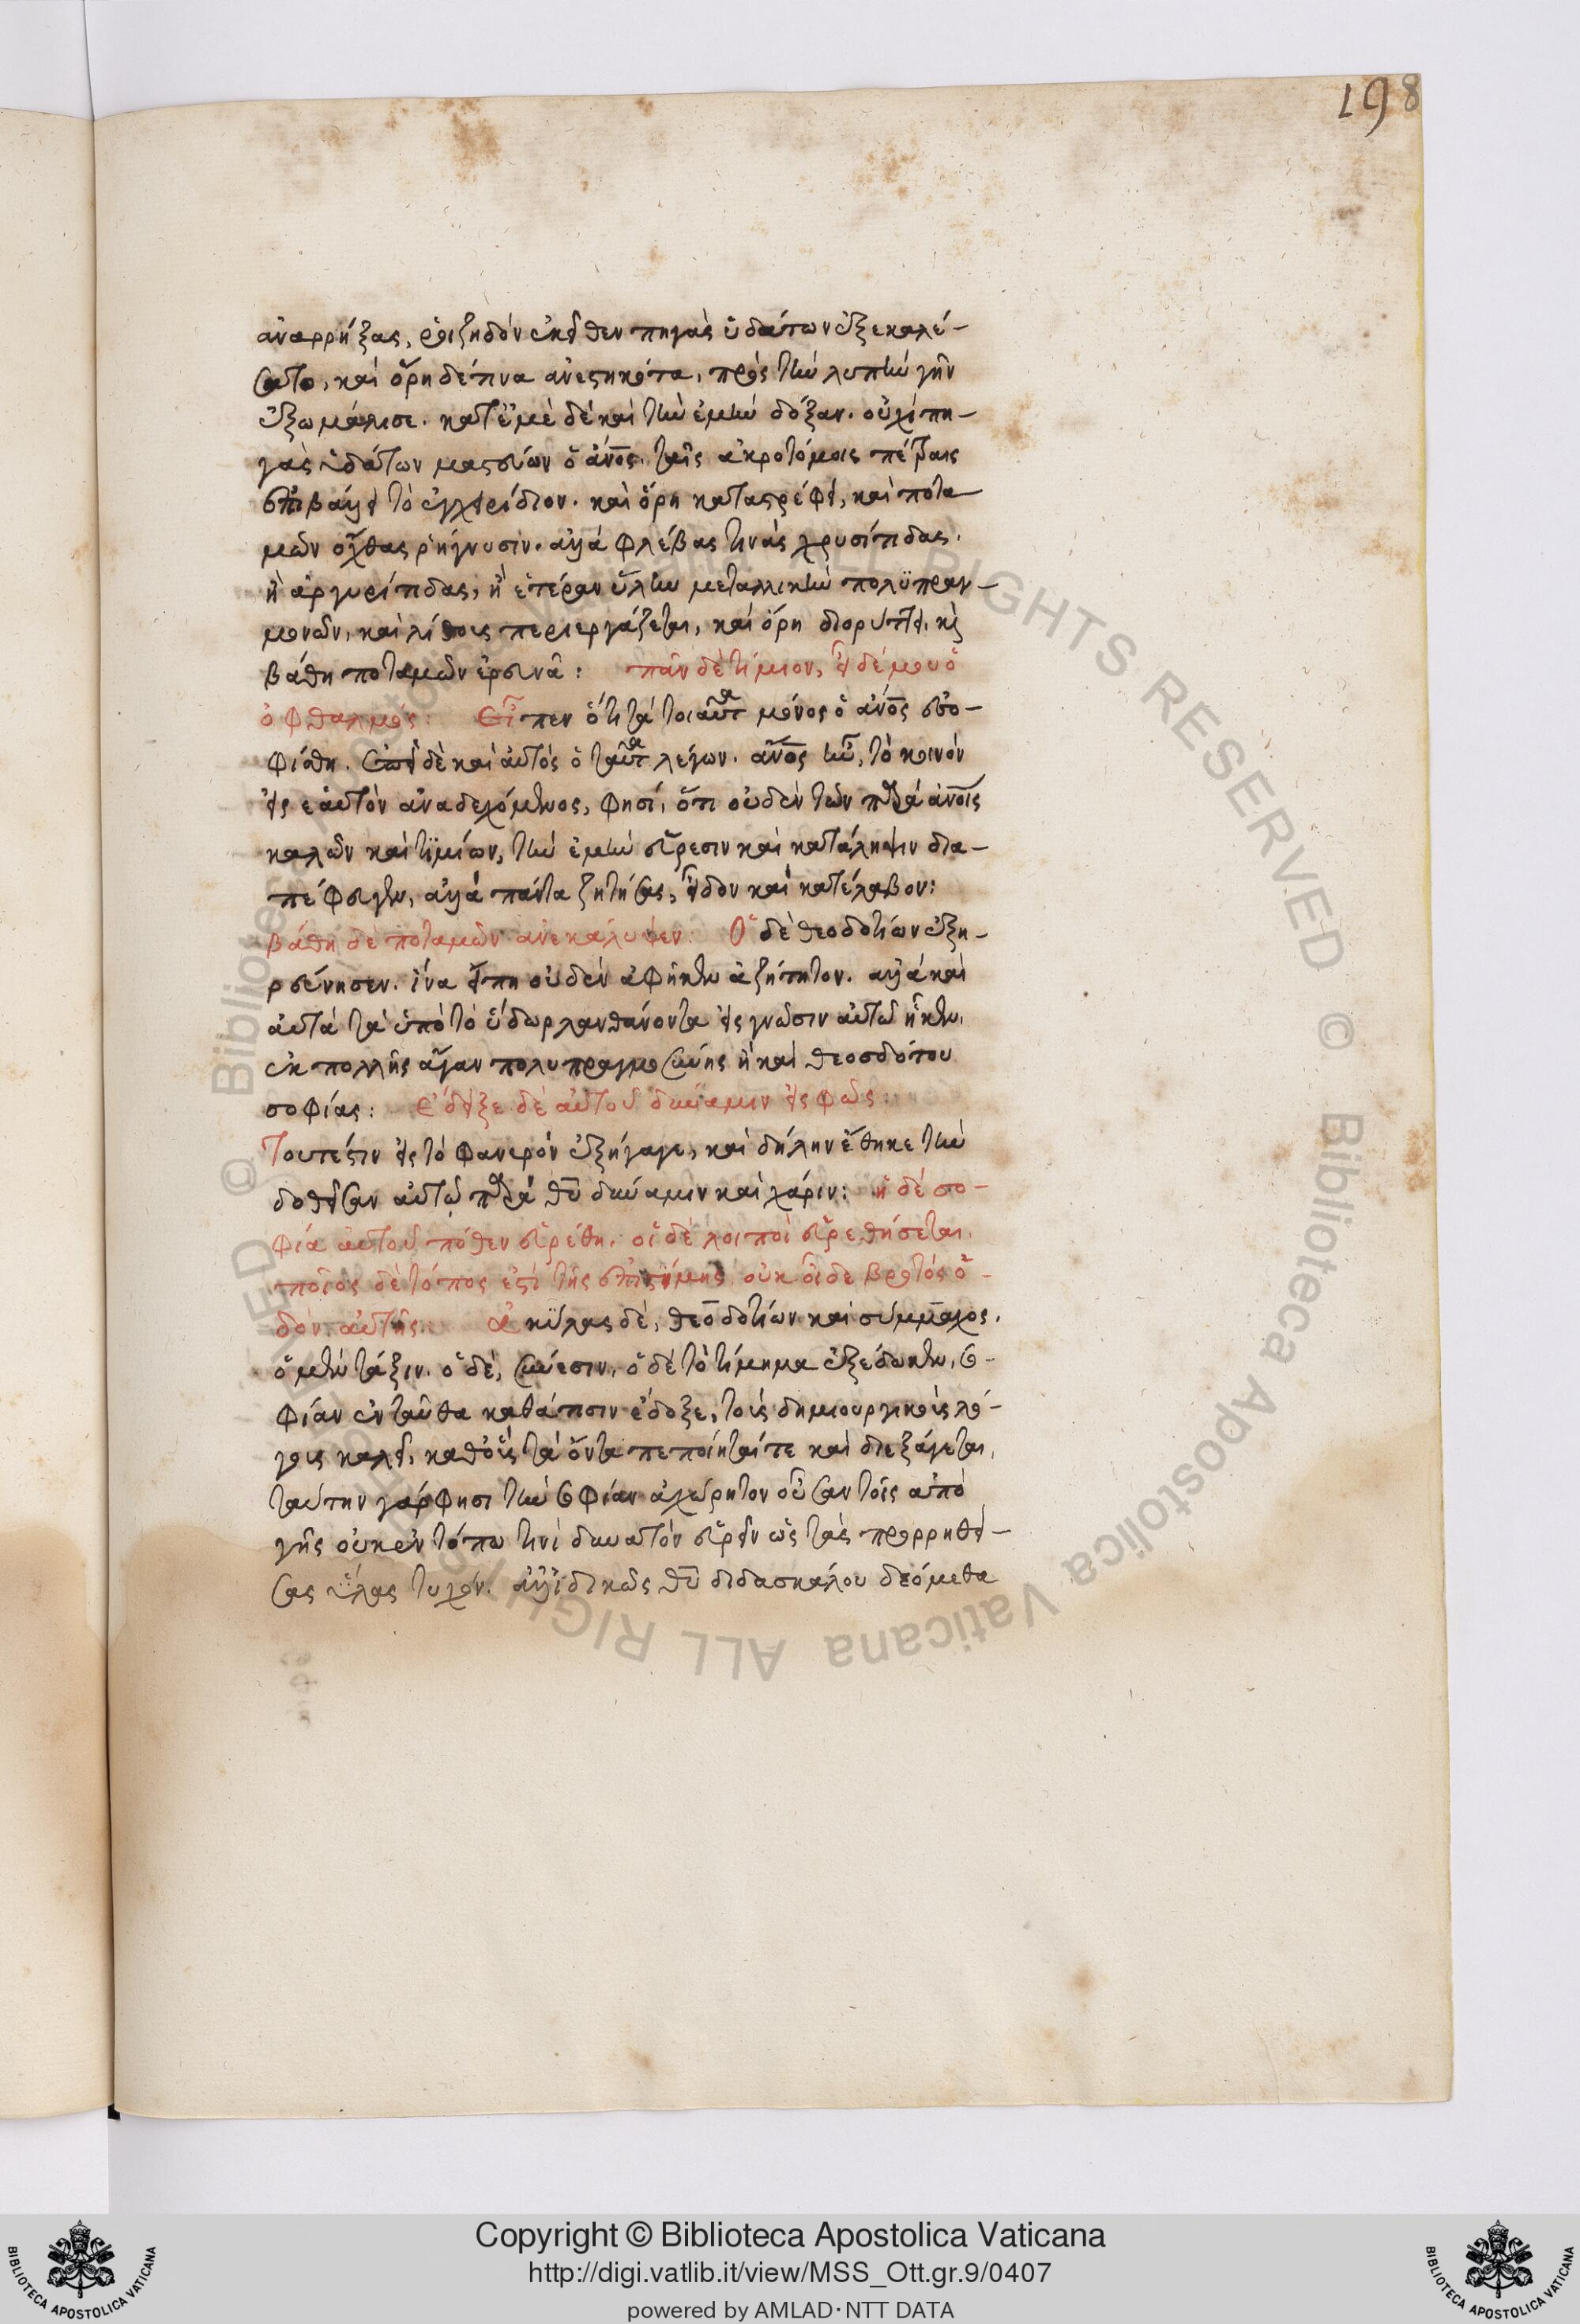 198
ἀναρρήξας, ῥοιζηδὸν ἐκεῖθεν πηγὰς ὑδάτων ἐξεκαλέ-
σατο, καὶ ὄρη δέ τινα ἀνεστηκότα, πρὸς τὴν λοιπὴν γῆν
ἐξωμάλισε. κατ' ἐμὲ δὲ καὶ τὴν ἐμὴν δόξαν. οὐχὶ πη-
γὰς ὑδάτων μαστεύων ὁ ἄνος. ταῖς ἀκροτόμοις πέτραις
ἐπιβάλλει τὸ ἐγχειρίδιον. καὶ ὄρη καταστρέφει, καὶ ποτα-
μῶν ὄχθας ῥήγνυσιν. ἀλλὰ φλέβας τινὰς χρυσίτιδας.
ἢ ἀργυρίτιδας, ἢ ἑτέραν ὕλην μεταλλικὴν πολυπραγ-
μονῶν, καὶ λίθοις περιεργάζεται, καὶ ὄρη διορύττει. κὶ
βάθη ποταμῶν ἐρευνᾶ: πᾶν δὲ τίμιον, εἶδέ μου ὁ
ὀφθαλμός: Εἶπεν ὅτι τὰ τοιαῦτα μόνος ὁ ἄνος ἐσο-
φίσθη. ἐπεὶ δὲ καὶ αὐτὸς ὁ ταῦτα λέγων. ἄνος ἦν, τὸ κοινὸν
εἰς ἑαυτὸν ἀναδεχόμενος, φησί, ὅτι οὐδὲν τῶν παρὰ ἀνοις
καλῶν καὶ τιμίων, τὴν ἐμὴν εὕρεσιν καὶ κατάληψιν δια-
πέφευγεν, ἀλλὰ πάντα ζητήσας, εἶδον καὶ κατέλαβον:
βάθη δὲ ποταμῶν ἀνεκάλυψεν: Ὁ δὲ θεοδοτίων ἐξη-
ρεύνησεν. ἵνα εἴπη οὐδὲν ἀφῆκεν ἀζήτητον. ἀλλὰ καὶ
αὐτὰ τὰ ὑπὸ τὸ ὕδωρ λανθάνοντα εἰς γνῶσιν αὐτῶ ἧκεν.
ἐκ πολλῆς ἄγαν πολυπραγμοσύνης ἢ καὶ θεοσδότου
σοφίας: ἔδειξε δὲ αὐτοῦ δύναμιν εἰς φῶς:
Τουτέστιν εἰς τὸ φανερὸν ἐξήγαγε, καὶ δήλην ἔθηκε τὴν
δοθεῖσαν αὐτῷ παρὰ θῦ δύναμιν καὶ χάριν: ἡ δὲ σο-
φία αὐτοῦ πόθεν εὑρέθη. οἱ δὲ λοιποὶ εὑρεθήσεται.
ποῖος δὲ τόπος ἐστὶ τῆς ἐπιστήμης. οὐκ οἶδε βροτὸς ὁ-
δὸν αὐτῆς: ἀκύλας δὲ, θεοδοτίων καὶ σύμμαχος.
ὁ μὲν τάξιν. ὁ δὲ, σύνεσιν. ὁ δὲ τὸ τίμημα ἐξέδωκεν. σο-
φίαν ἐνταῦθα καθά τισιν ἔδοξε, τοὺς δημιουργικοὺς λό-
γους καλεῖ, καθ' οὓς τὰ ὄντα πεποίηταί τε καὶ διεξάγεται.
ταύτην γάρ φησι τὴν σοφίαν ἀχώρητον οὖσαν τοῖς ἀπὸ
γῆς οὐκ ἐν τόπω τινὶ δυνατὸν εὑρεῖν ὡς τὰς προρρηθεί-
σας ὕλας τυχόν. ἀλλ' εἰδικῶς θῦ διδασκάλου δεόμεθα
Copyright © Biblioteca Apostolica Vaticana
http://digi.vatlib.it/view/MSS_Ott.gr.9/0407
powered by AMLAD·NTT DATA
BIBLIOTECA APOSTOLICA VATICANA
BIBLIOTECA APOSTOLICA VATICANA
© Biblioteca Apostolica Vaticana ALL RIGHTS RESERVED © Biblioteca Apostolica Vaticana ALL RIGHTS RESERVED